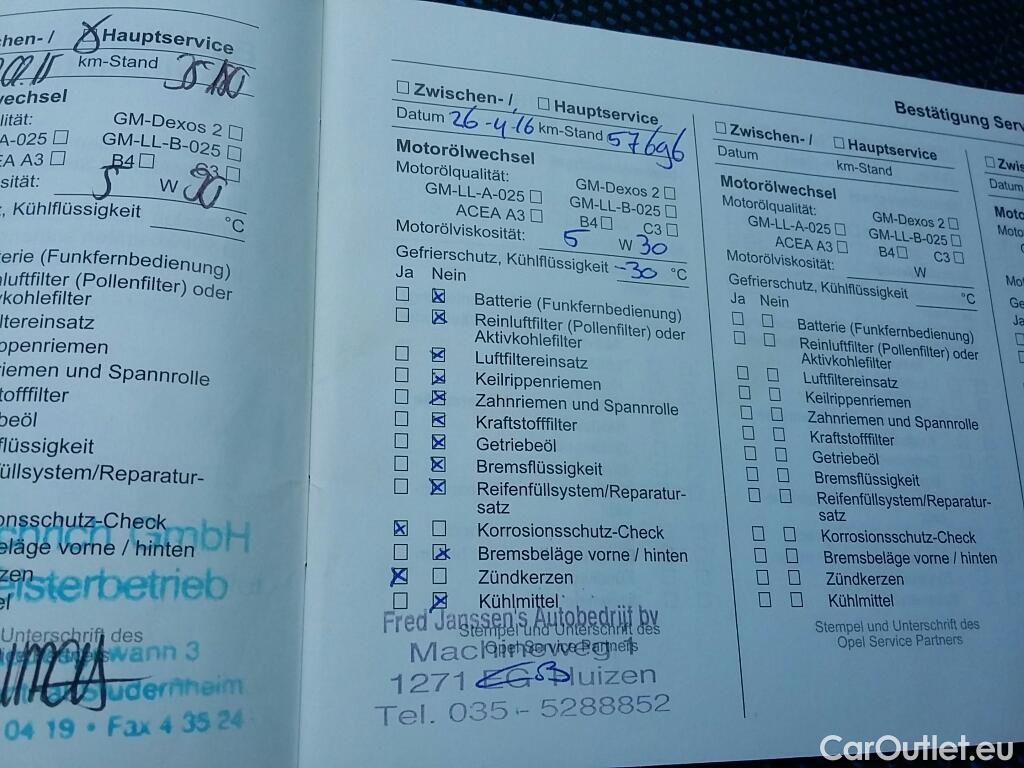 chen- / Hauptservice
km-Stand
wechsel
lität: GM-Dexos 2
A-025 GM-LL-B-025
EA A3 B4 C3
sität: 5 W 30
z, Kühlflüssigkeit °C
terie (Funkfernbedienung)
nluftfilter (Pollenfilter) oder
vkohlefilter
ltereinsatz
ppenriemen
riemen und Spannrolle
tofffilter
beöl
flüssigkeit
füllsystem/Reparatur-
onsschutz-Check
GmbH
eläge vorne / hinten
zen
eisterbetrieb
el
Unterschrift des
wann 3
udernheim
04 19 • Fax 4 35 24
Bestätigung Serv
Zwischen- / Hauptservice
Datum 26-4-16 km-Stand 57696
Motorölwechsel
Motorölqualität: GM-Dexos 2
GM-LL-A-025 GM-LL-B-025
ACEA A3 B4 C3
Motorölviskosität: 5 W 30
Gefrierschutz, Kühlflüssigkeit -30 °C
Ja Nein
Batterie (Funkfernbedienung)
Reinluftfilter (Pollenfilter) oder
Aktivkohlefilter
Luftfiltereinsatz
Keilrippenriemen
Zahnriemen und Spannrolle
Kraftstofffilter
Getriebeöl
Bremsflüssigkeit
Reifenfüllsystem/Reparatur-
satz
Korrosionsschutz-Check
Bremsbeläge vorne / hinten
Zündkerzen
Kühlmittel
Fred Janssen's Autobedrijf bv
Stempel und Unterschrift des
Opel Service Partners
Machineweg 1
1271 Huizen
Tel. 035 - 5288852
Zwischen- / Hauptservice
Datum km-Stand
Motorölwechsel
Motorölqualität: GM-Dexos 2
GM-LL-A-025 GM-LL-B-025
ACEA A3 B4 C3
Motorölviskosität: W
Gefrierschutz, Kühlflüssigkeit °C
Ja Nein
Batterie (Funkfernbedienung)
Reinluftfilter (Pollenfilter) oder
Aktivkohlefilter
Luftfiltereinsatz
Keilrippenriemen
Zahnriemen und Spannrolle
Kraftstofffilter
Getriebeöl
Bremsflüssigkeit
Reifenfüllsystem/Reparatur-
satz
Korrosionsschutz-Check
Bremsbeläge vorne / hinten
Zündkerzen
Kühlmittel
Stempel und Unterschrift des
Opel Service Partners
Zwis
Datum
Moto
Ja
CarOutlet.eu